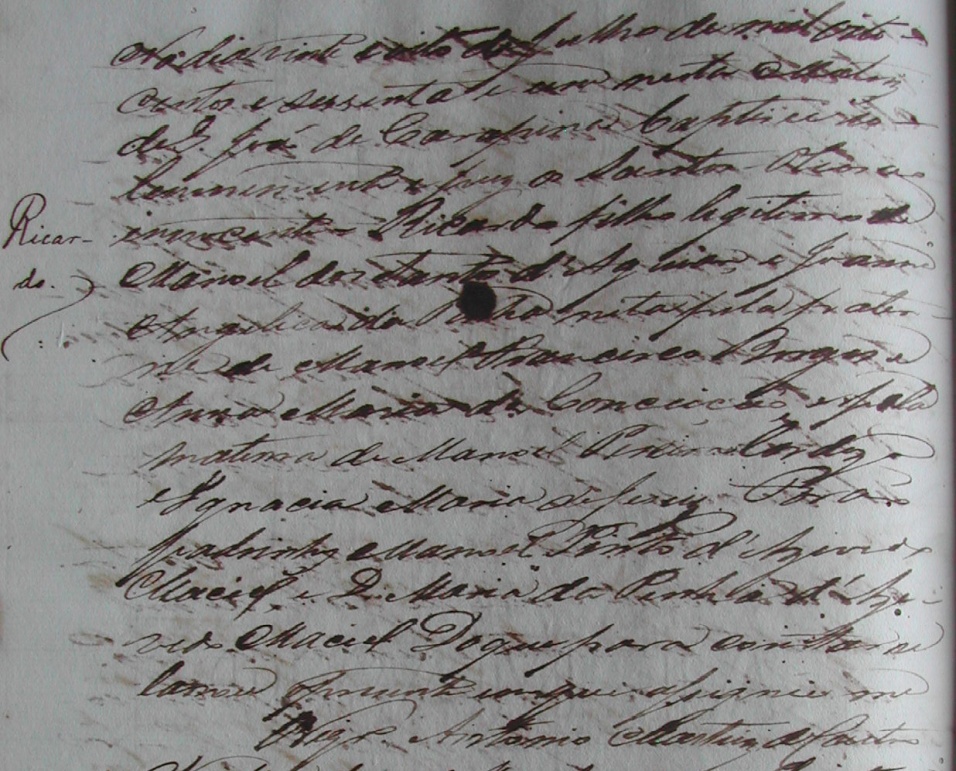 Ricar-
do.
No dia vinte e oito de Julho de mil oito-
centos e sessenta e um nesta Matriz
de S. José de Carapina baptisei so-
lemnemente e puz os Santos Oleos ao
innocente Ricardo filho legitimo de
Manoel dos Santos d'Aguiar e Joanna
Angelica da neto pela pater
na de Manoel Francisco Borges e
Anna Maria da Conceição, e pela
materna de Manoel Cardozo
e Ignacia Maria de Jesuz. Forão
padrinhos Manoel Pinto d'Azeve-
Maciel e D. Maria da Penha d'Aze-
vedo Maciel Do que para constar se
lavrou o presente em que assignei me
Vigr.º Antonio Martins